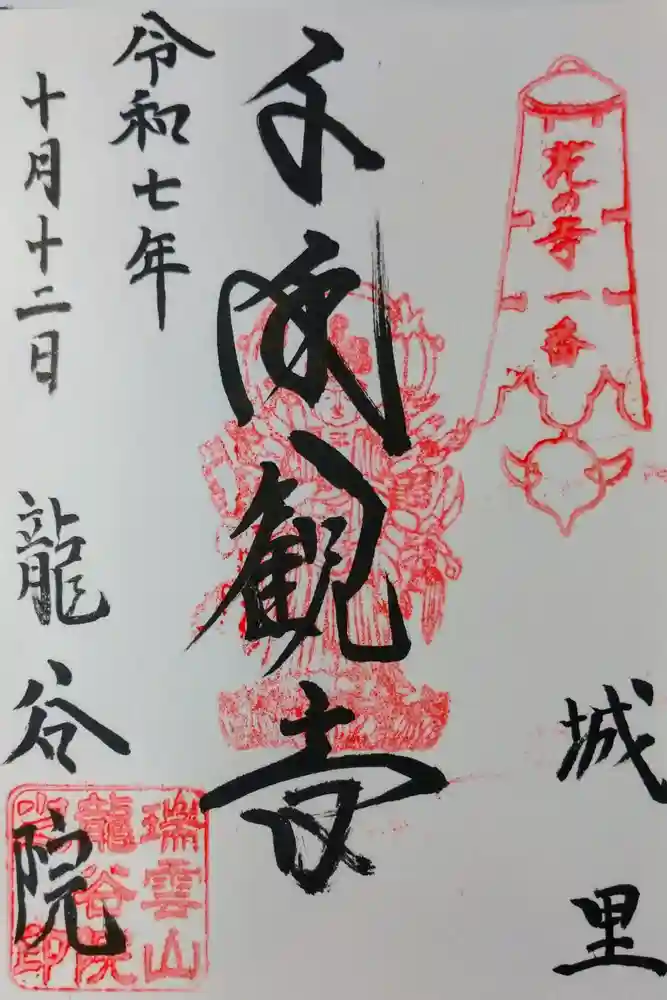 花の寺一番
城里
観
令和七年
十月十二日
龍谷院
瑞雲山
龍谷院
印